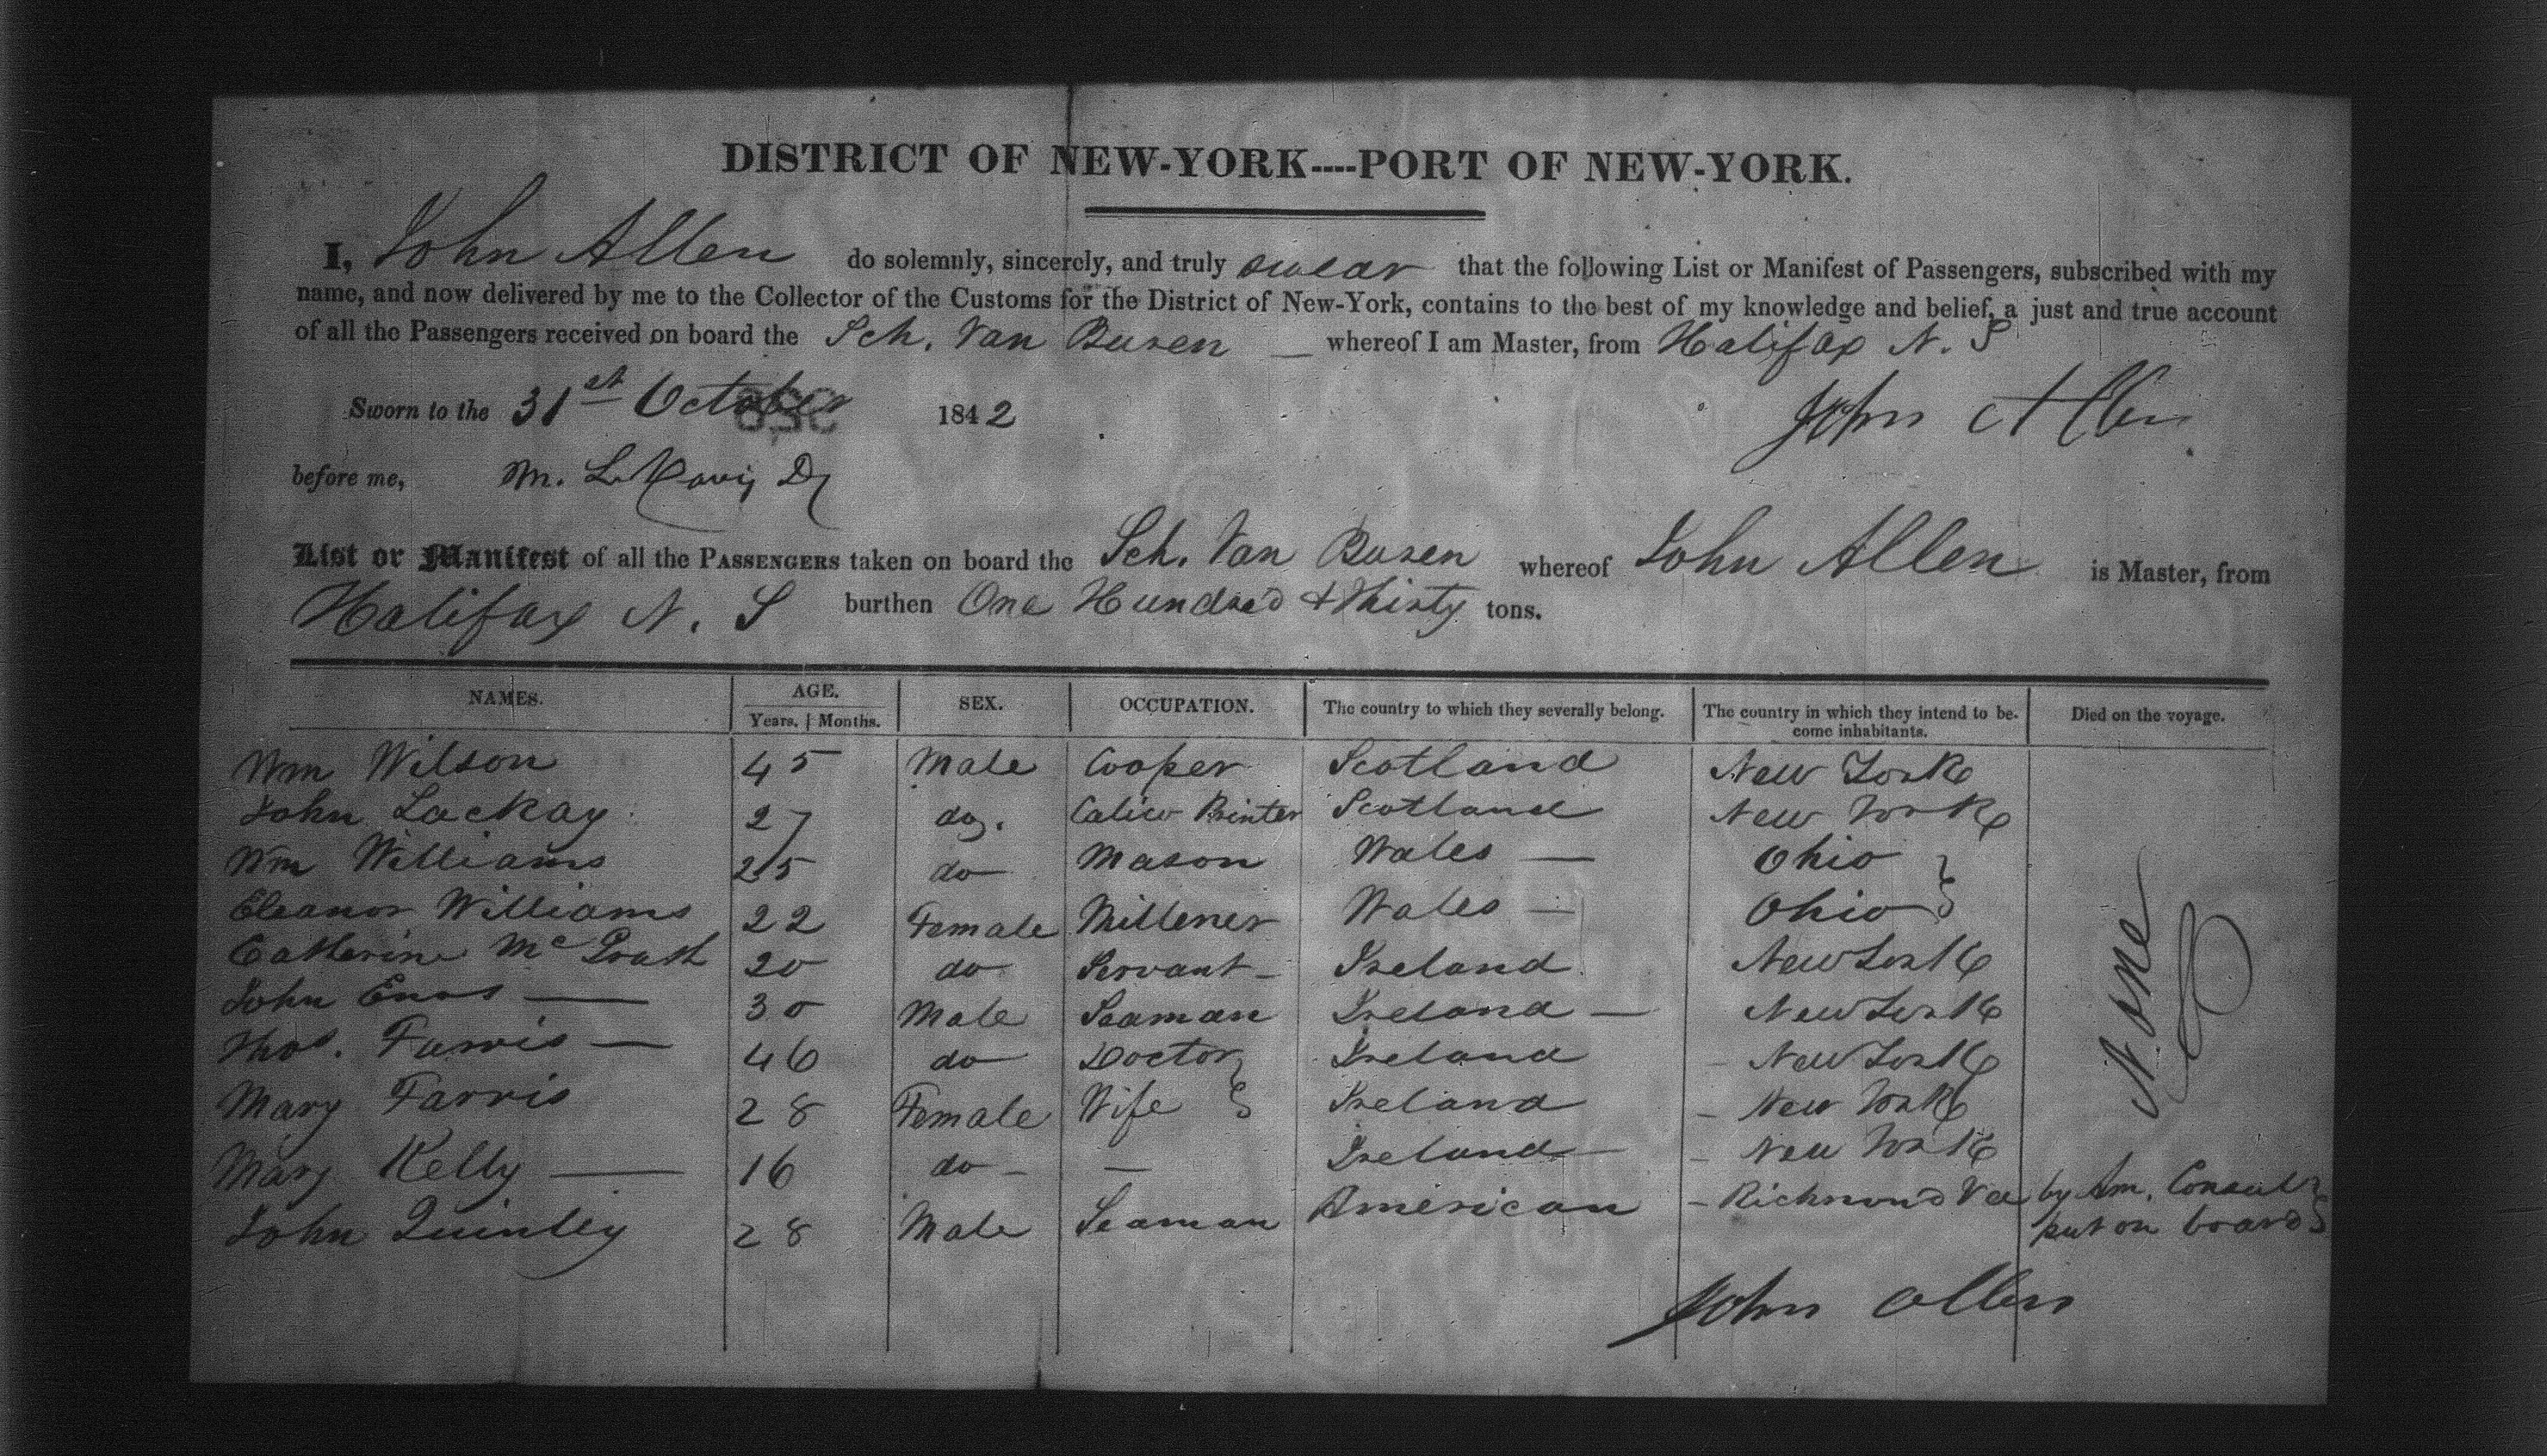 DISTRICT OF NEW-YORK----PORT OF NEW-YORK.
I, John Allen do solemnly, sincerely, and truly swear that the following List or Manifest of Passengers, subscribed with my
name, and now delivered by me to the Collector of the Customs for the District of New-York, contains to the best of my knowledge and belief, a just and true account
of all the Passengers received on board the Sch. Van Buren — whereof I am Master, from Halifax N. S
Sworn to the 31st October 1842 John Allen
before me, M. L.
List or Manifest of all the PASSENGERS taken on board the Sch. Van Buren whereof John Allen is Master, from
Halifax N. S burthen One Hundred & Thirty tons.
NAMES. AGE. SEX. OCCUPATION. The country to which they severally belong. The country in which they intend to be- Died on the voyage.
Years. | Months. come inhabitants.
Wm Wilson 45 Male Cooper Scotland New York
John Lackay 27 do. Calico Printer Scotland New York
Wm Williams 25 do Mason Wales — Ohio
Eleanor Williams 22 Female Millener Wales — Ohio
Catherine McGrath 20 do Servant - Ireland New York
John Enos — 30 Male Seaman Ireland — New York
Thos. Farris — 46 do Doctor Ireland - New York
Mary Farris 28 Female Wife Ireland - New York
None
Mary Kelly — 16 do - — Ireland - New York
John Quinley 28 Male Seaman American - Richmond Va by Am. Consul
put on board
John Allen